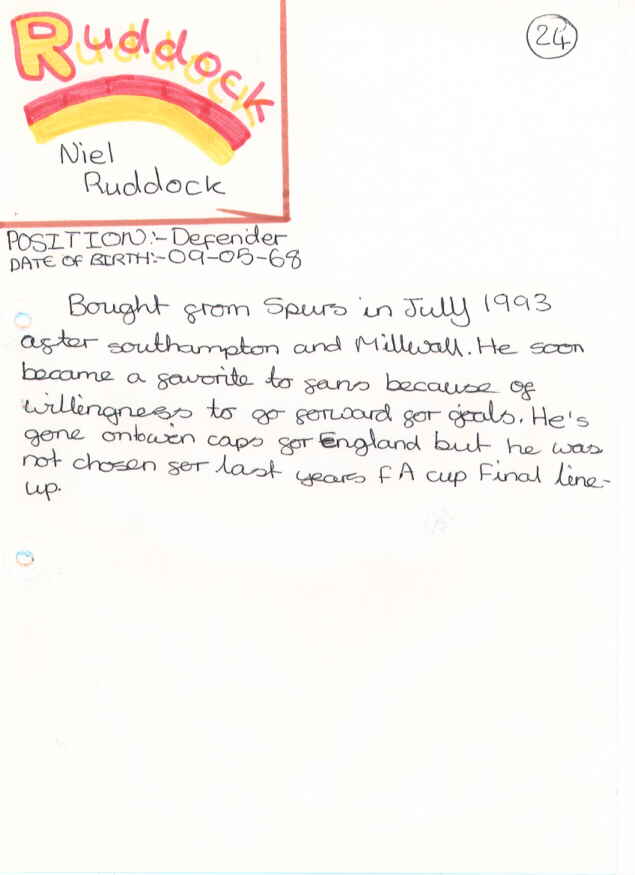 Ruddock
24
Niel
Ruddock
POSITION:- Defender
DATE OF BIRTH:- 09-05-68
Bought from Spurs in July 1993
after southampton and Millwall. He soon
became a favorite to fans because of
willingness to go forward for goals. He's
gone onto win caps for England but he was
not chosen for last years FA cup Final line-
up.